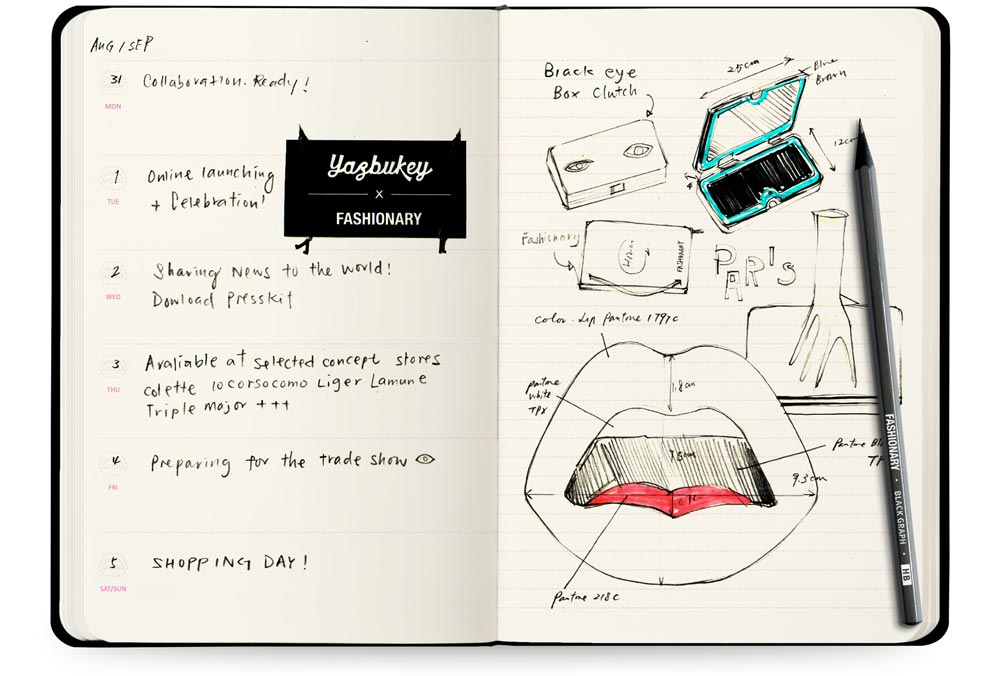 AUG / SEP
31
MON
Collaboration. Ready!
1
TUE
Online launching
+ Celebration!
Yazbukey
X
FASHIONARY
2
WED
Sharing News to the world!
Dowload Presskit
3
THU
Avaliable at selected concept stores
colette 10corsocomo Liger Lamune
Triple major +++
4
FRI
Preparing for the trade show
5
SAT/SUN
SHOPPING DAY!
Black eye
Box Clutch
25cm
Blue
Brown
12cm
Fashionary
FASHIONARY
PARIS
color. Lip pantone 1797c
1.8cm
pantone
white
TPX
7.5cm
Pantone
9.3cm
Pantone 218c
FASHIONARY • BLACK GRAPH • HB